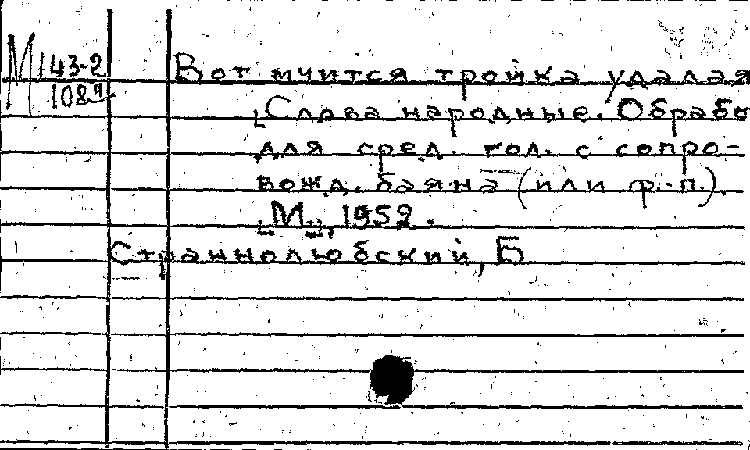 М 143-2
1089
Вот мчится тройка удалая
[Слова народные. Обрабо
для сред. гол. с сопро-
вожд. баяна (или ф.-п.).
[М.], 1952.
Страннолюбский, Б